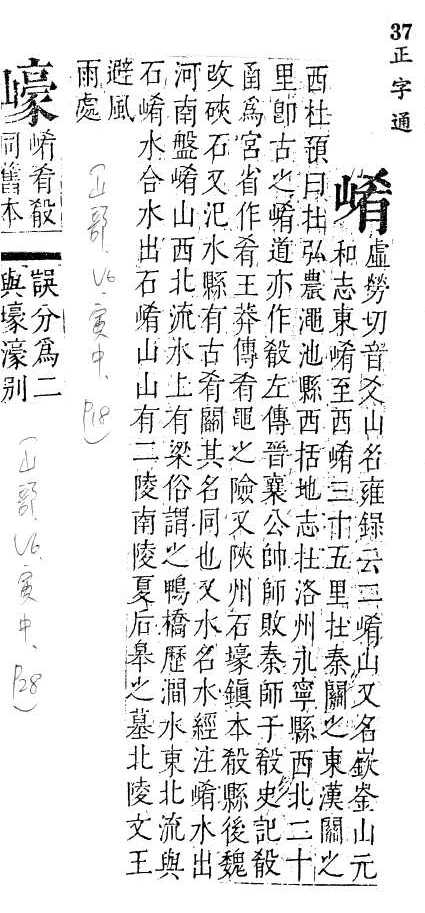 37
正字通
崤
虛勞切音爻山名雍錄云二崤山又名嶔崟山元
和志東崤至西崤三十五里在秦關之東漢關之
西杜預曰在弘農澠池縣西括地志在洛州永寧縣西北二十
里卽古之崤道亦作殽左傳晉襄公帥師敗秦師于殽史記殽
函爲宮省作肴王莽傳肴黽之險又陝州石壕鎮本殽縣後魏
改硤石又汜水縣有古肴關其名同也又水名水經注崤水出
河南盤崤山西北流水上有梁俗謂之鴨橋歷澗水東北流與
石崤水合水出石崤山山有二陵南陵夏后皋之墓北陵文王
避風
雨處
(山部, V6, 寅中, P18)
嶀
崤肴殽
同舊本
誤分爲二
與壕濠别
(山部, V6, 寅中, P28)